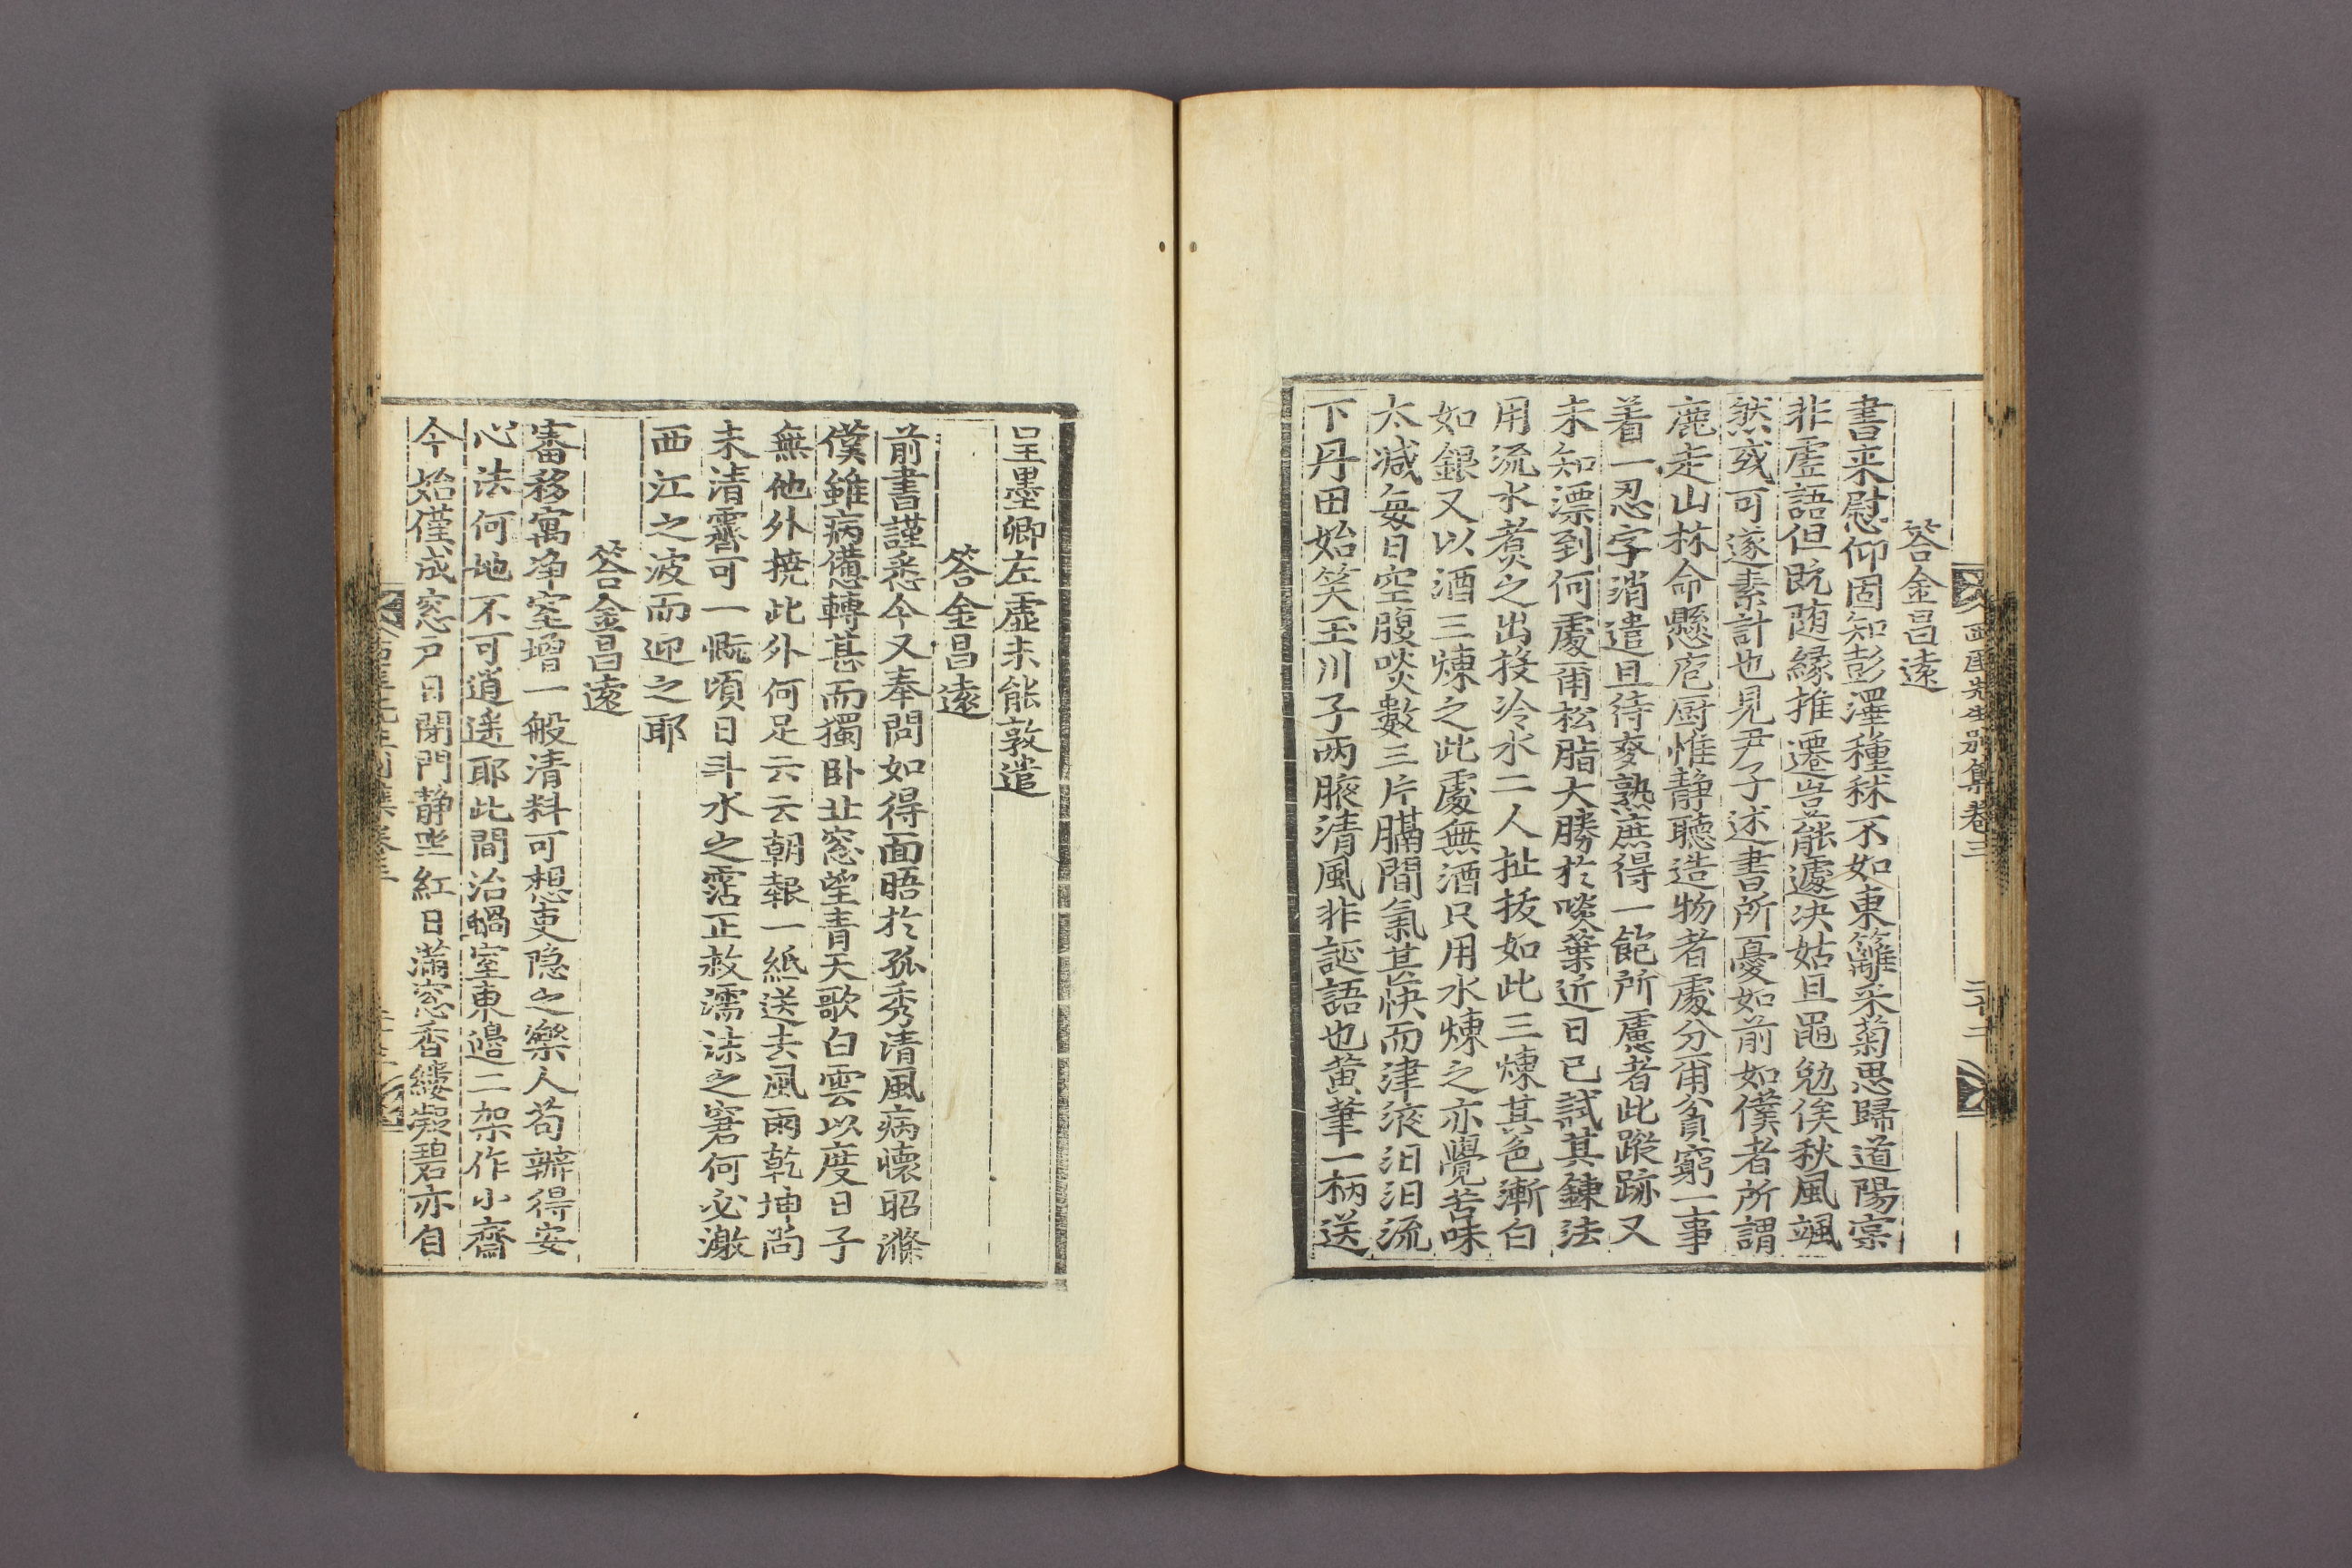 答金昌遠
書来慰仰固知彭澤種秫不如東籬采菊思歸道陽寔
非虛語但既随緣推遷豈能遽决姑且黽勉俟秋風颯
然或可遂素計也見尹子述書所憂如前如僕者所謂
鹿走山林命懸庖厨惟静聽造物者處分甭貧窮一事
着一忍字消遣且待麥熟庶得一飽所慮者此蹤跡又
未知漂到何處甭松脂大勝於啖葉近日已試其鍊法
用流水煮之出投冷水二人扯拔如此三煉其色漸白
如銀又以酒三煉之此處無酒只用水煉之亦覺苦味
太减每日空腹啖數三片膈間氣甚快而津液汩汩流
下丹田始笑玉川子两腋清風非誕語也黄筆一柄送
西厓先生别集卷三
呈墨卿左虛未能敦遣
答金昌遠
前書謹悉今又奉問如得面晤於孤秀清風病懷昭滌
僕雖病憊轉甚而獨卧北窓望青天歌白雲以度日子
無他外撓此外何足云云朝報一紙送去風雨乾坤尚
未清霽可一慨頃日斗水之霑正救濡沫之窘何必激
西江之波而迎之耶
答金昌遠
審移寓净室增一般清料可想吏隐之樂人苟辦得安
心法何地不可逍遥耶此間治蝸室東邊二架作小齋
今始僅成窓戶日閉門静坐紅日滿窓香縷凝碧亦自